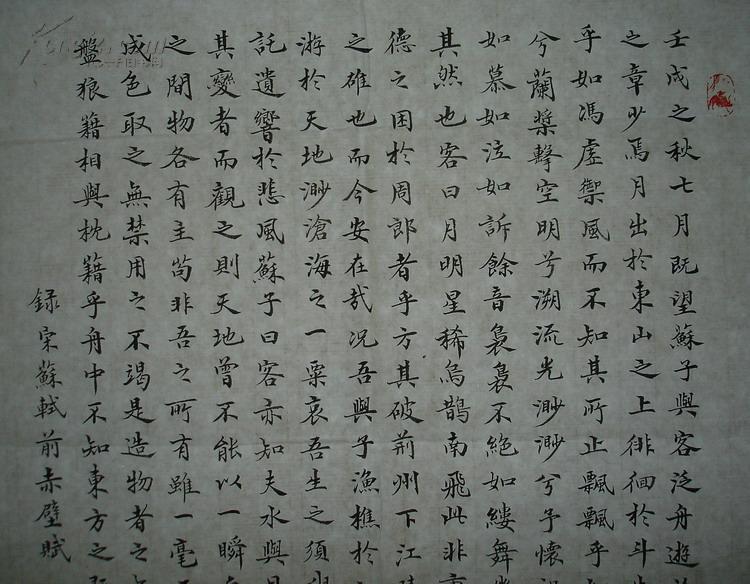 壬戌之秋七月既望蘇子與客泛舟遊
之章少焉月出於東山之上徘徊於斗
乎如馮虛禦風而不知其所止飄飄乎
兮蘭槳擊空明兮溯流光渺渺兮予懷
如慕如泣如訴餘音裊裊不絕如縷舞
其然也客曰月明星稀烏鵲南飛此非
德之困於周郎者乎方其破荊州下江
之雄也而今安在哉況吾與子漁樵於
游於天地渺滄海之一粟哀吾生之須
託遺響於悲風蘇子曰客亦知夫水與
其變者而觀之則天地曾不能以一瞬
之間物各有主苟非吾之所有雖一毫
成色取之無禁用之不竭是造物者之
盤狼籍相與枕籍乎舟中不知東方之
録宋蘇軾前赤壁賦